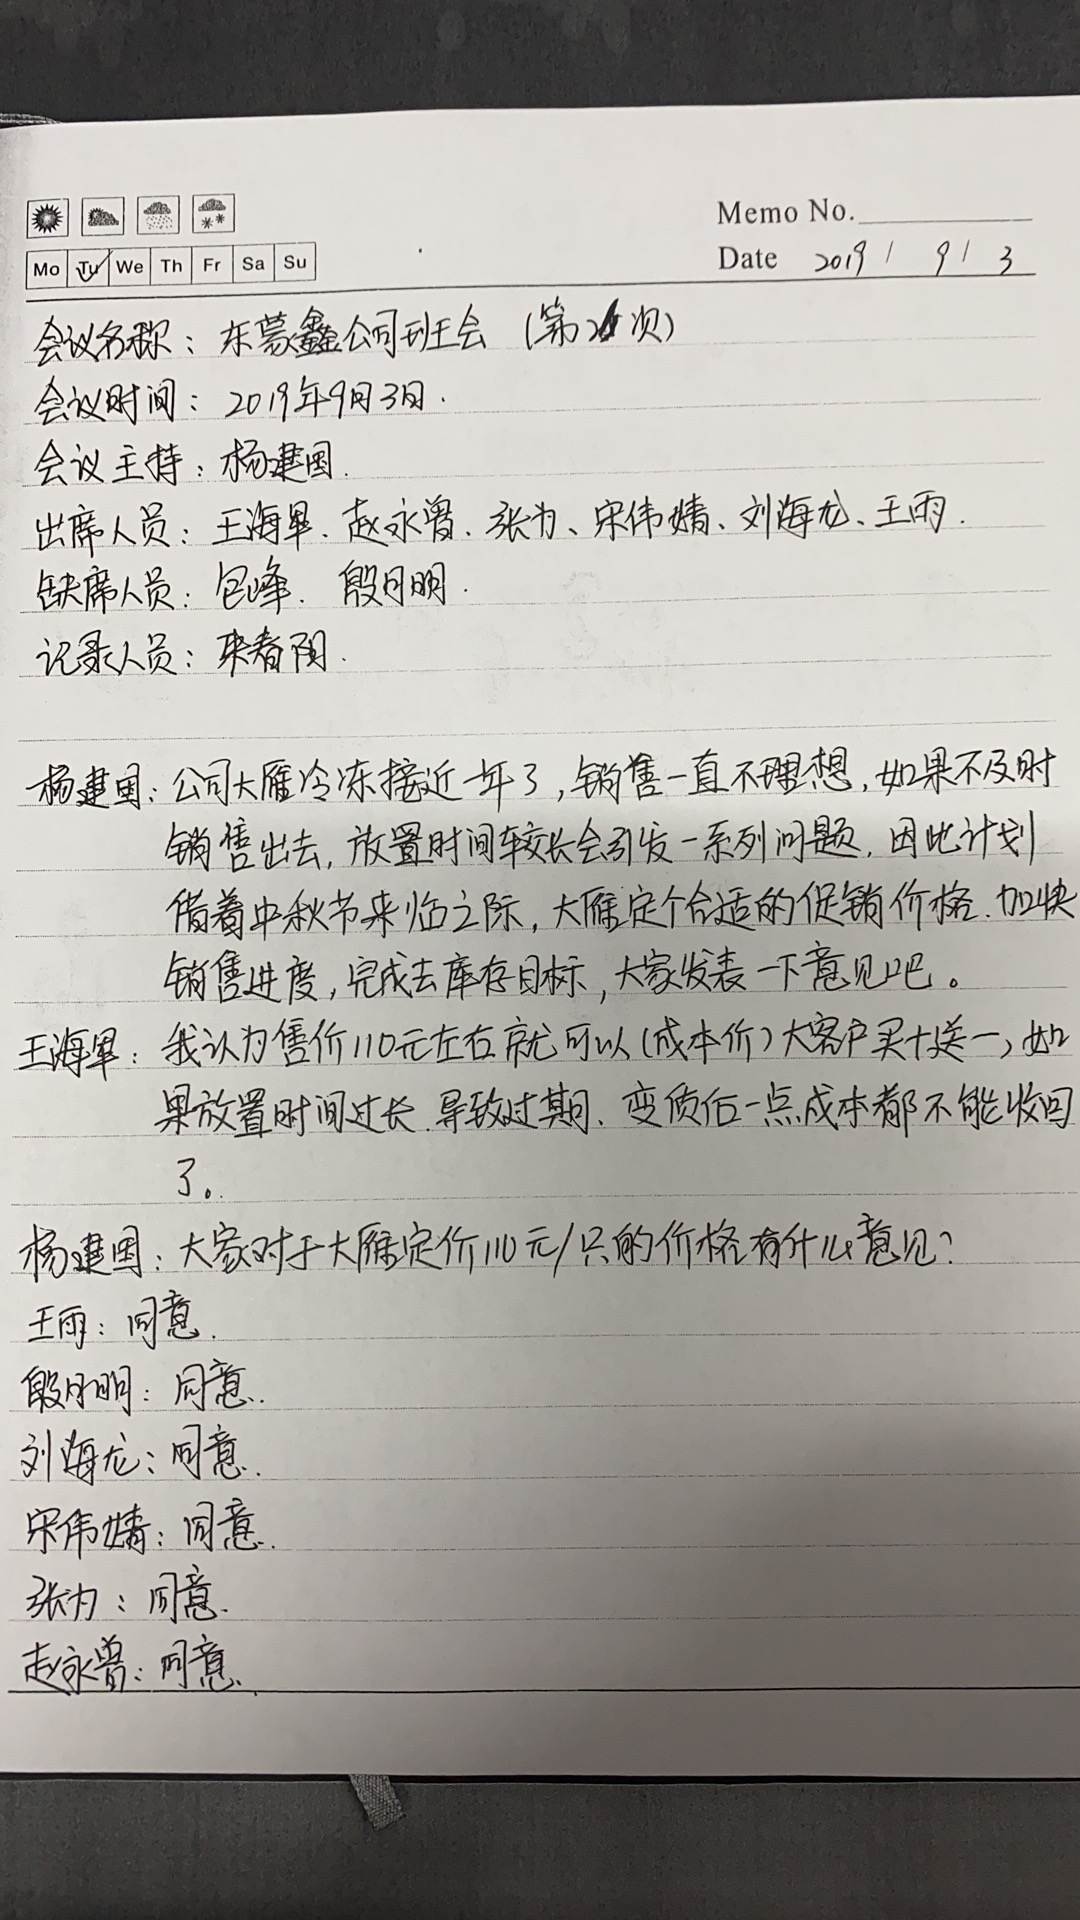 Memo No.
Mo Tu We Th Fr Sa Su
Date 2019 / 9 / 3
会议名称：东蒙鑫公司班会（第 次）
会议时间：2019年9月3日.
会议主持：杨建国.
出席人员：王海军、赵永曾、张为、宋伟婧、刘海龙、王雨.
缺席人员：包峰、殷月明.
记录人员：来春阳.
杨建国：公司大雁冷冻接近一年了,销售一直不理想,如果不及时
销售出去,放置时间较长会引发一系列问题,因此计划
借着中秋节来临之际,大雁定个合适的促销价格、加快
销售进度,完成去库存目标,大家发表一下意见吧。
王海军：我认为售价110元左右就可以(成本价)大客户买十送一,如
果放置时间过长、导致过期、变质后一点成本都不能收回
了。
杨建国：大家对于大雁定价110元/只的价格有什么意见?
王雨：同意.
殷月明：同意.
刘海龙：同意.
宋伟婧：同意.
张为：同意.
赵永曾：同意.